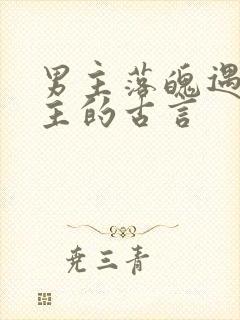 男主落魄遇
主的古言
尧三青